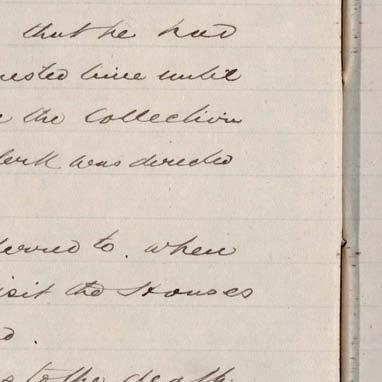 that he had
uested time until
e the Collection
lerk was directed
erred to. when
isit the Houses
d.
s to the death